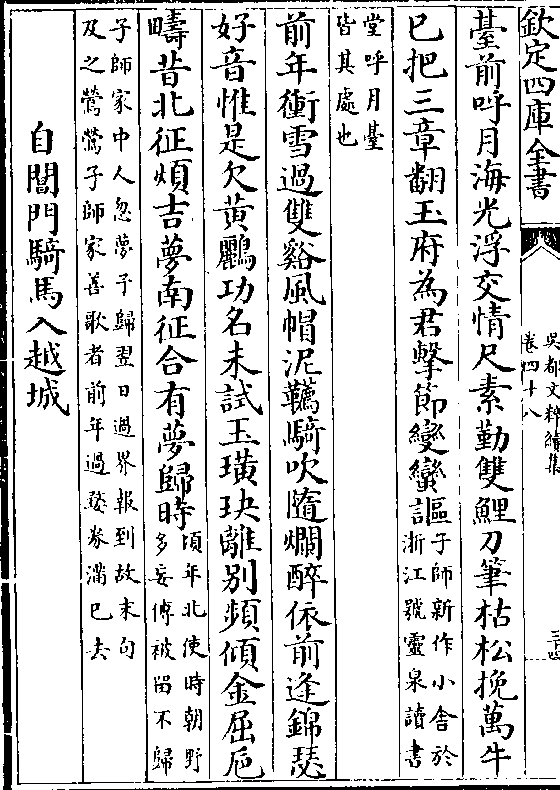 欽定四庫全書
吳都文粹續集
卷四十八
臺前呼月海光浮交情尺素勤雙鯉刀筆枯松挽萬牛
已把三章翻玉府為君擊節變蠻謳
子師新作小舍於
浙江號靈泉讀書
堂呼月臺
皆其處也
前年衝雪過雙谿風帽泥韉騎吹隨爛醉依前逢錦瑟
好音惟是欠黄鸝功名未試玉璜玦離別頻傾金屈巵
疇昔北征煩吉夢南征合有夢歸時
頃年北使時朝野
多妄傳被留不歸
子師家中人忽夢予歸翌日過界報到故末句
及之鶯鶯子師家善歌者前年過婺券滿已去
自閶門騎馬入越城